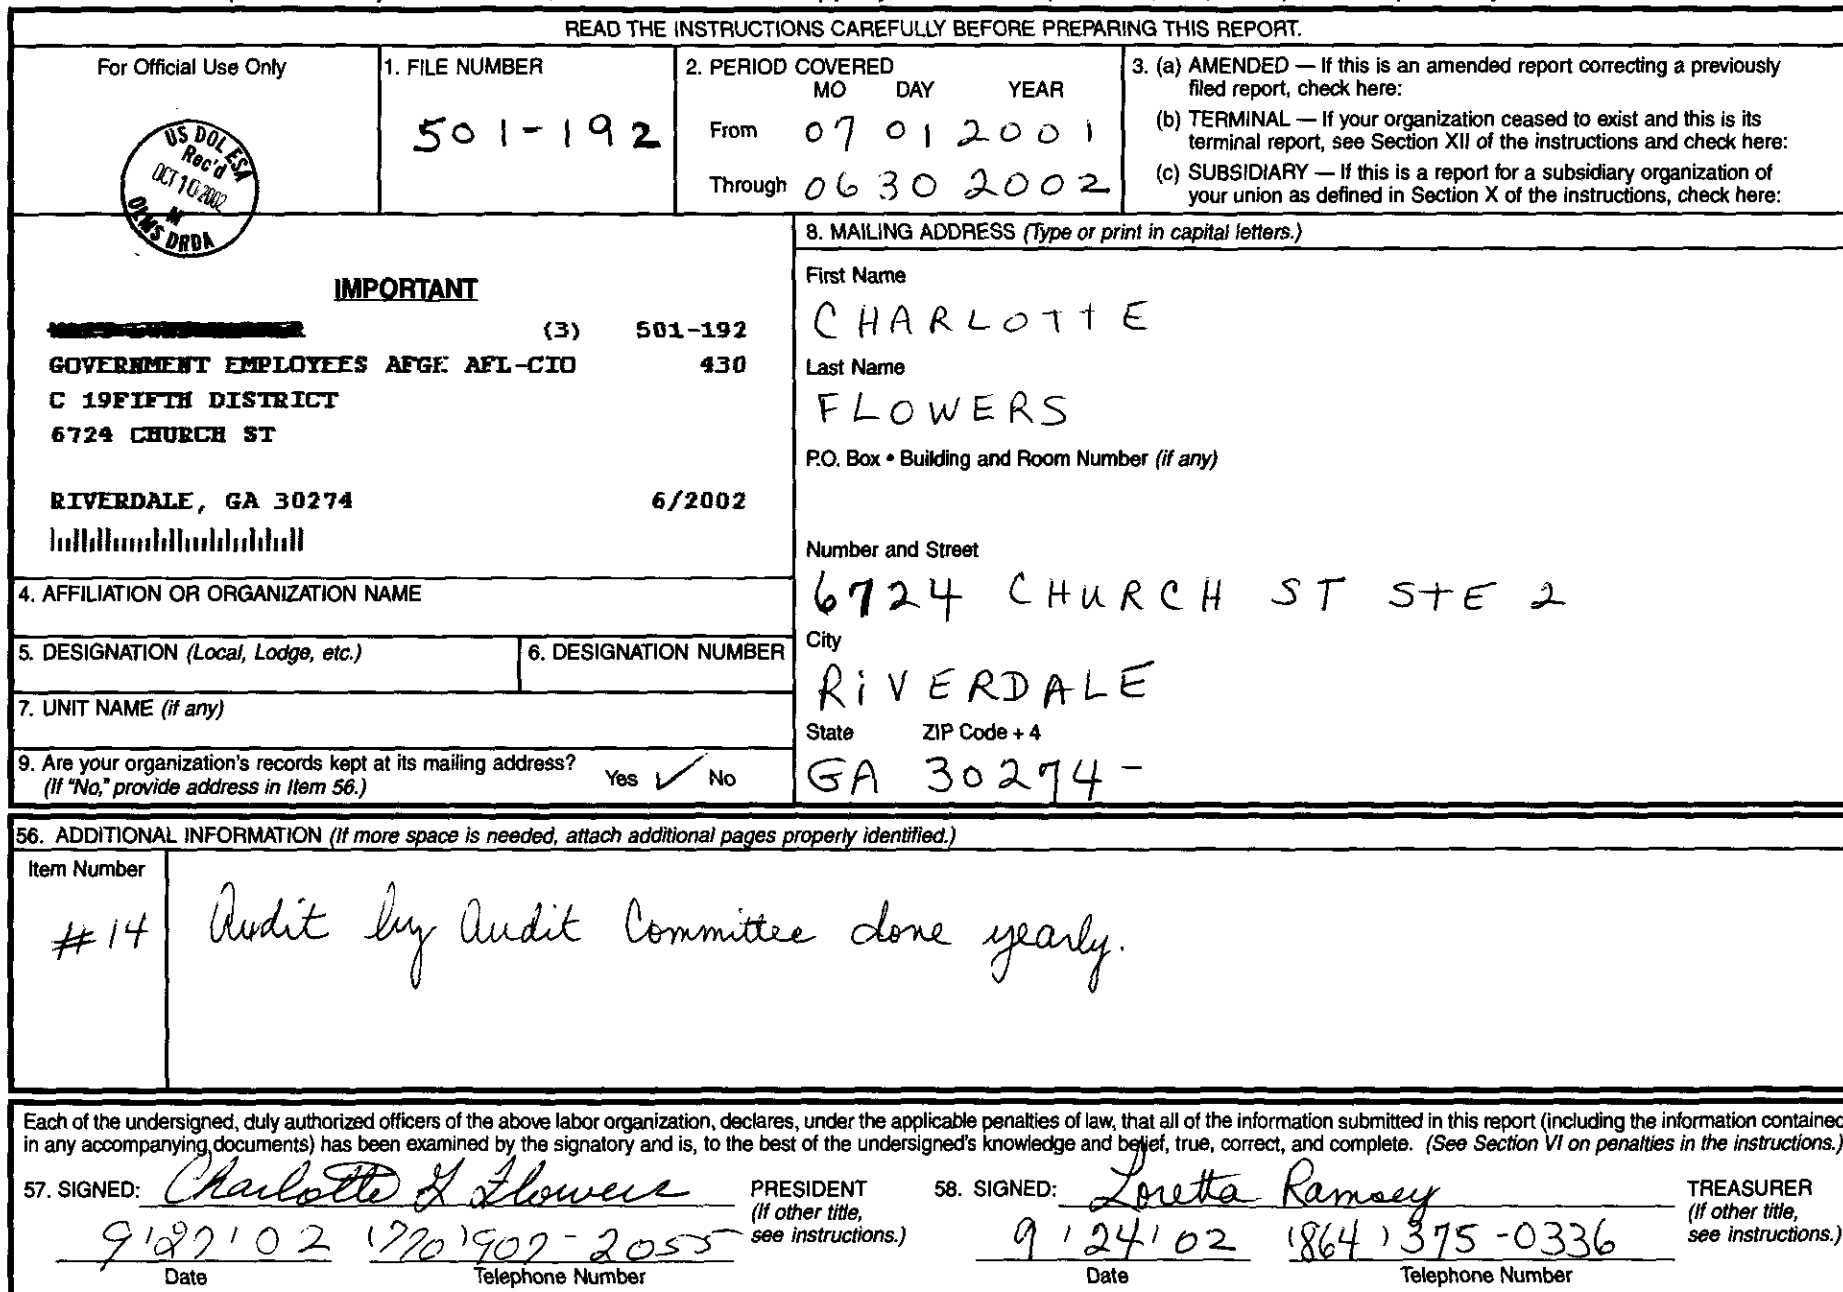 READ THE INSTRUCTIONS CAREFULLY BEFORE PREPARING THIS REPORT.
For Official Use Only
US DOL ESA
Rec'd
OCT 10 2002
M
OLMS DRDA
1. FILE NUMBER
501-192
2. PERIOD COVERED
MO DAY YEAR
From 07 01 2001
Through 06 30 2002
3. (a) AMENDED — If this is an amended report correcting a previously
filed report, check here:
(b) TERMINAL — If your organization ceased to exist and this is its
terminal report, see Section XII of the instructions and check here:
(c) SUBSIDIARY — If this is a report for a subsidiary organization of
your union as defined in Section X of the instructions, check here:
IMPORTANT
(3) 501-192
GOVERNMENT EMPLOYEES AFGE AFL-CIO 430
C 19FIFTH DISTRICT
6724 CHURCH ST
RIVERDALE, GA 30274 6/2002
4. AFFILIATION OR ORGANIZATION NAME
5. DESIGNATION (Local, Lodge, etc.)
6. DESIGNATION NUMBER
7. UNIT NAME (if any)
9. Are your organization's records kept at its mailing address?
(If "No," provide address in Item 56.)
Yes ✓ No
8. MAILING ADDRESS (Type or print in capital letters.)
First Name
CHARLOTTE
Last Name
FLOWERS
P.O. Box • Building and Room Number (if any)
Number and Street
6724 CHURCH ST STE 2
City
RiVERDALE
State ZIP Code + 4
GA 30274-
56. ADDITIONAL INFORMATION (If more space is needed, attach additional pages properly identified.)
Item Number
#14 Audit by Audit Committee done yearly.
Each of the undersigned, duly authorized officers of the above labor organization, declares, under the applicable penalties of law, that all of the information submitted in this report (including the information contained
in any accompanying documents) has been examined by the signatory and is, to the best of the undersigned's knowledge and belief, true, correct, and complete. (See Section VI on penalties in the instructions.)
57. SIGNED: Charlotte Flowers
PRESIDENT
(If other title,
see instructions.)
9/27/02 (770) 907-2055
Date Telephone Number
58. SIGNED: Loretta Ramsey
TREASURER
(If other title,
see instructions.)
9/24/02 (864) 375-0336
Date Telephone Number